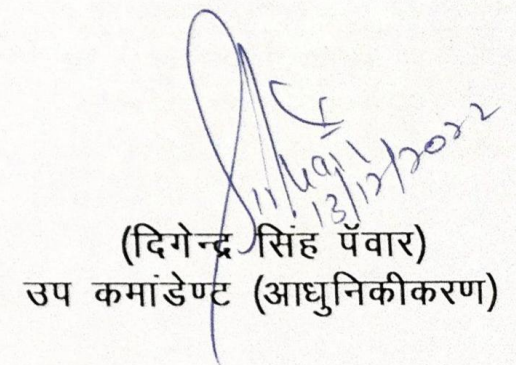 13/12/2022
(दिगेन्द्र सिंह पॅवार)
उप कमांडेण्ट (आधुनिकीकरण)